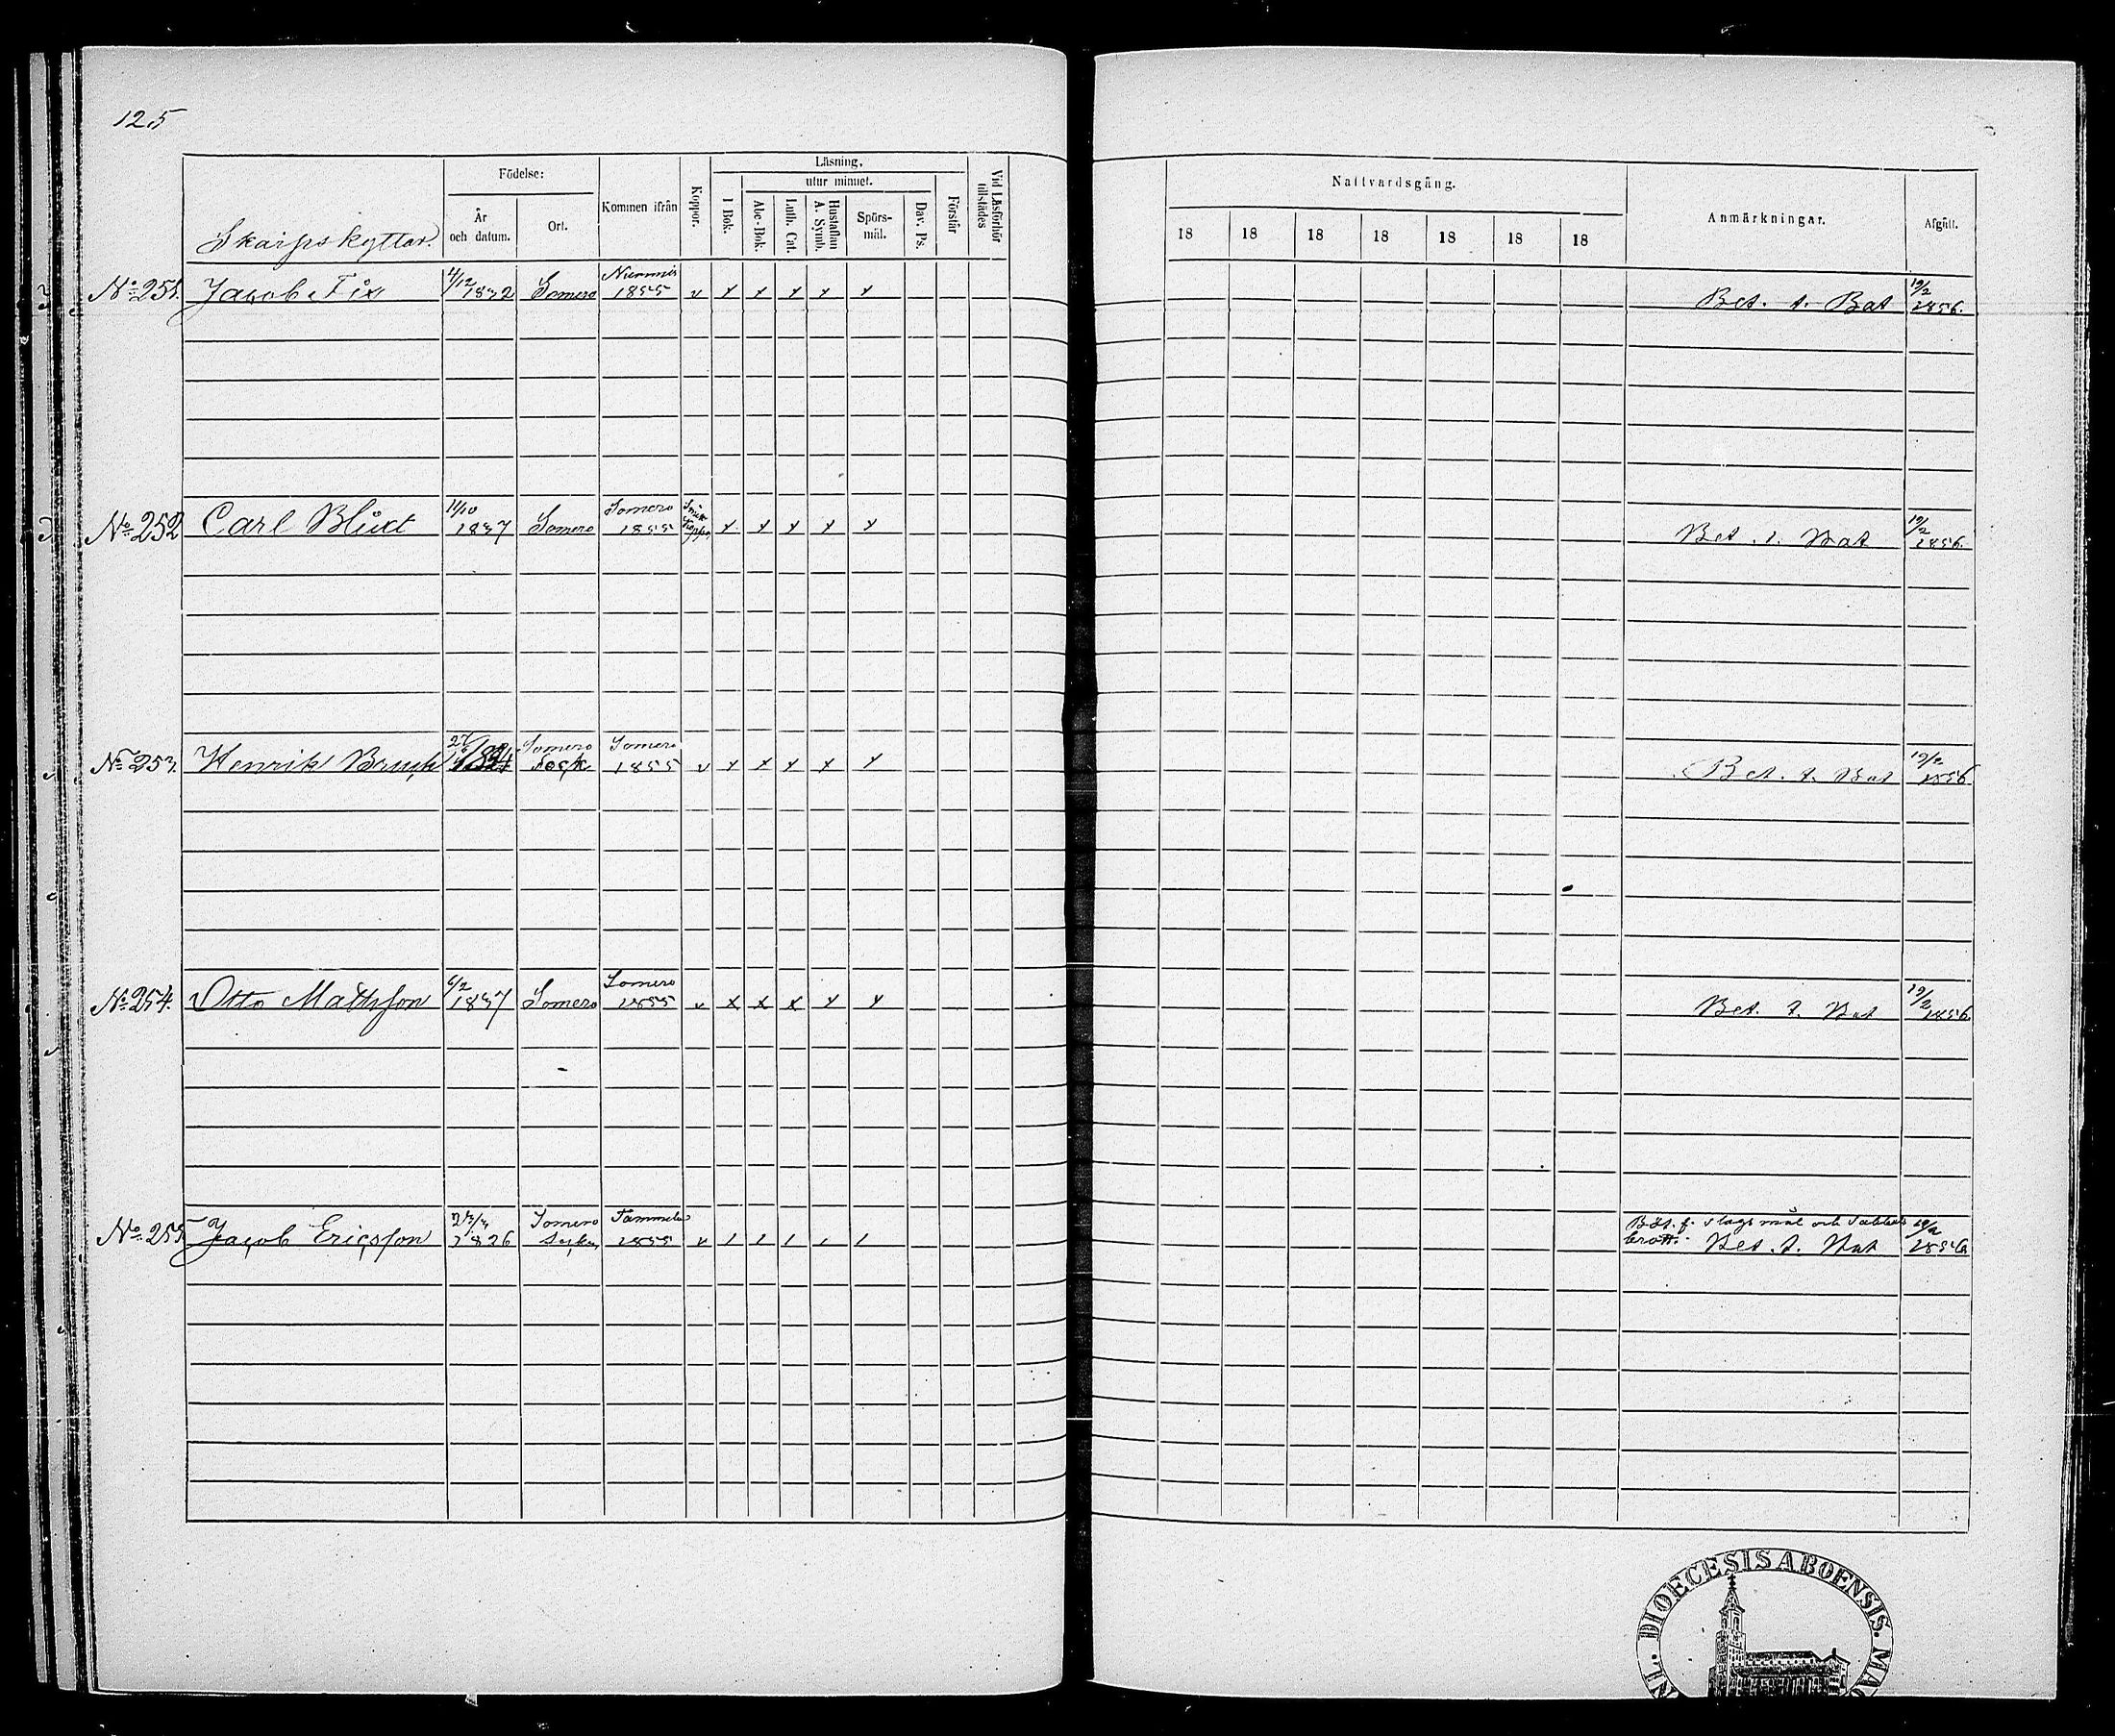 125
Födelse:
Läsning,
utur minnet.
Skarpskyttar.
År
och datum.
Ort.
Kommen ifrån
Koppor.
I Bok.
Abc-Bok.
Luth. Cat.
Hustaflan
A. Symb.
Spörs-
mål.
Dav. Ps.
Förstår
Vid Läsförhör
tillstädes
Nattvardsgång.
18 18 18 18 18 18 18
Anmärkningar.
Afgått.
No 251. Jacob Fix 4/12 1832 Somero Nummis 1855 v x x x x x Bet. t. Bat 19/2 1856.
No 252 Carl Blixt 11/10 1837 Somero Somero 1855 x x x x x Bet. t. Bat 19/2 1856.
No 253. Henrik Somero Somero 1855 v x x x x x Bet. t. Bat 19/2 1856
No 254. Otto Mattsson 6/2 1837 Somero Somero 1855 v x x x x x Bet. t. Bat 19/2 1856.
No 255 Jacob Ericsson 1826 Somero Tammela 1855 v / / / / / Böt. f. slagsmål och Sabbats
brott. Bet. t. Bat 19/2 1856
DIOECESIS ABOENSIS.